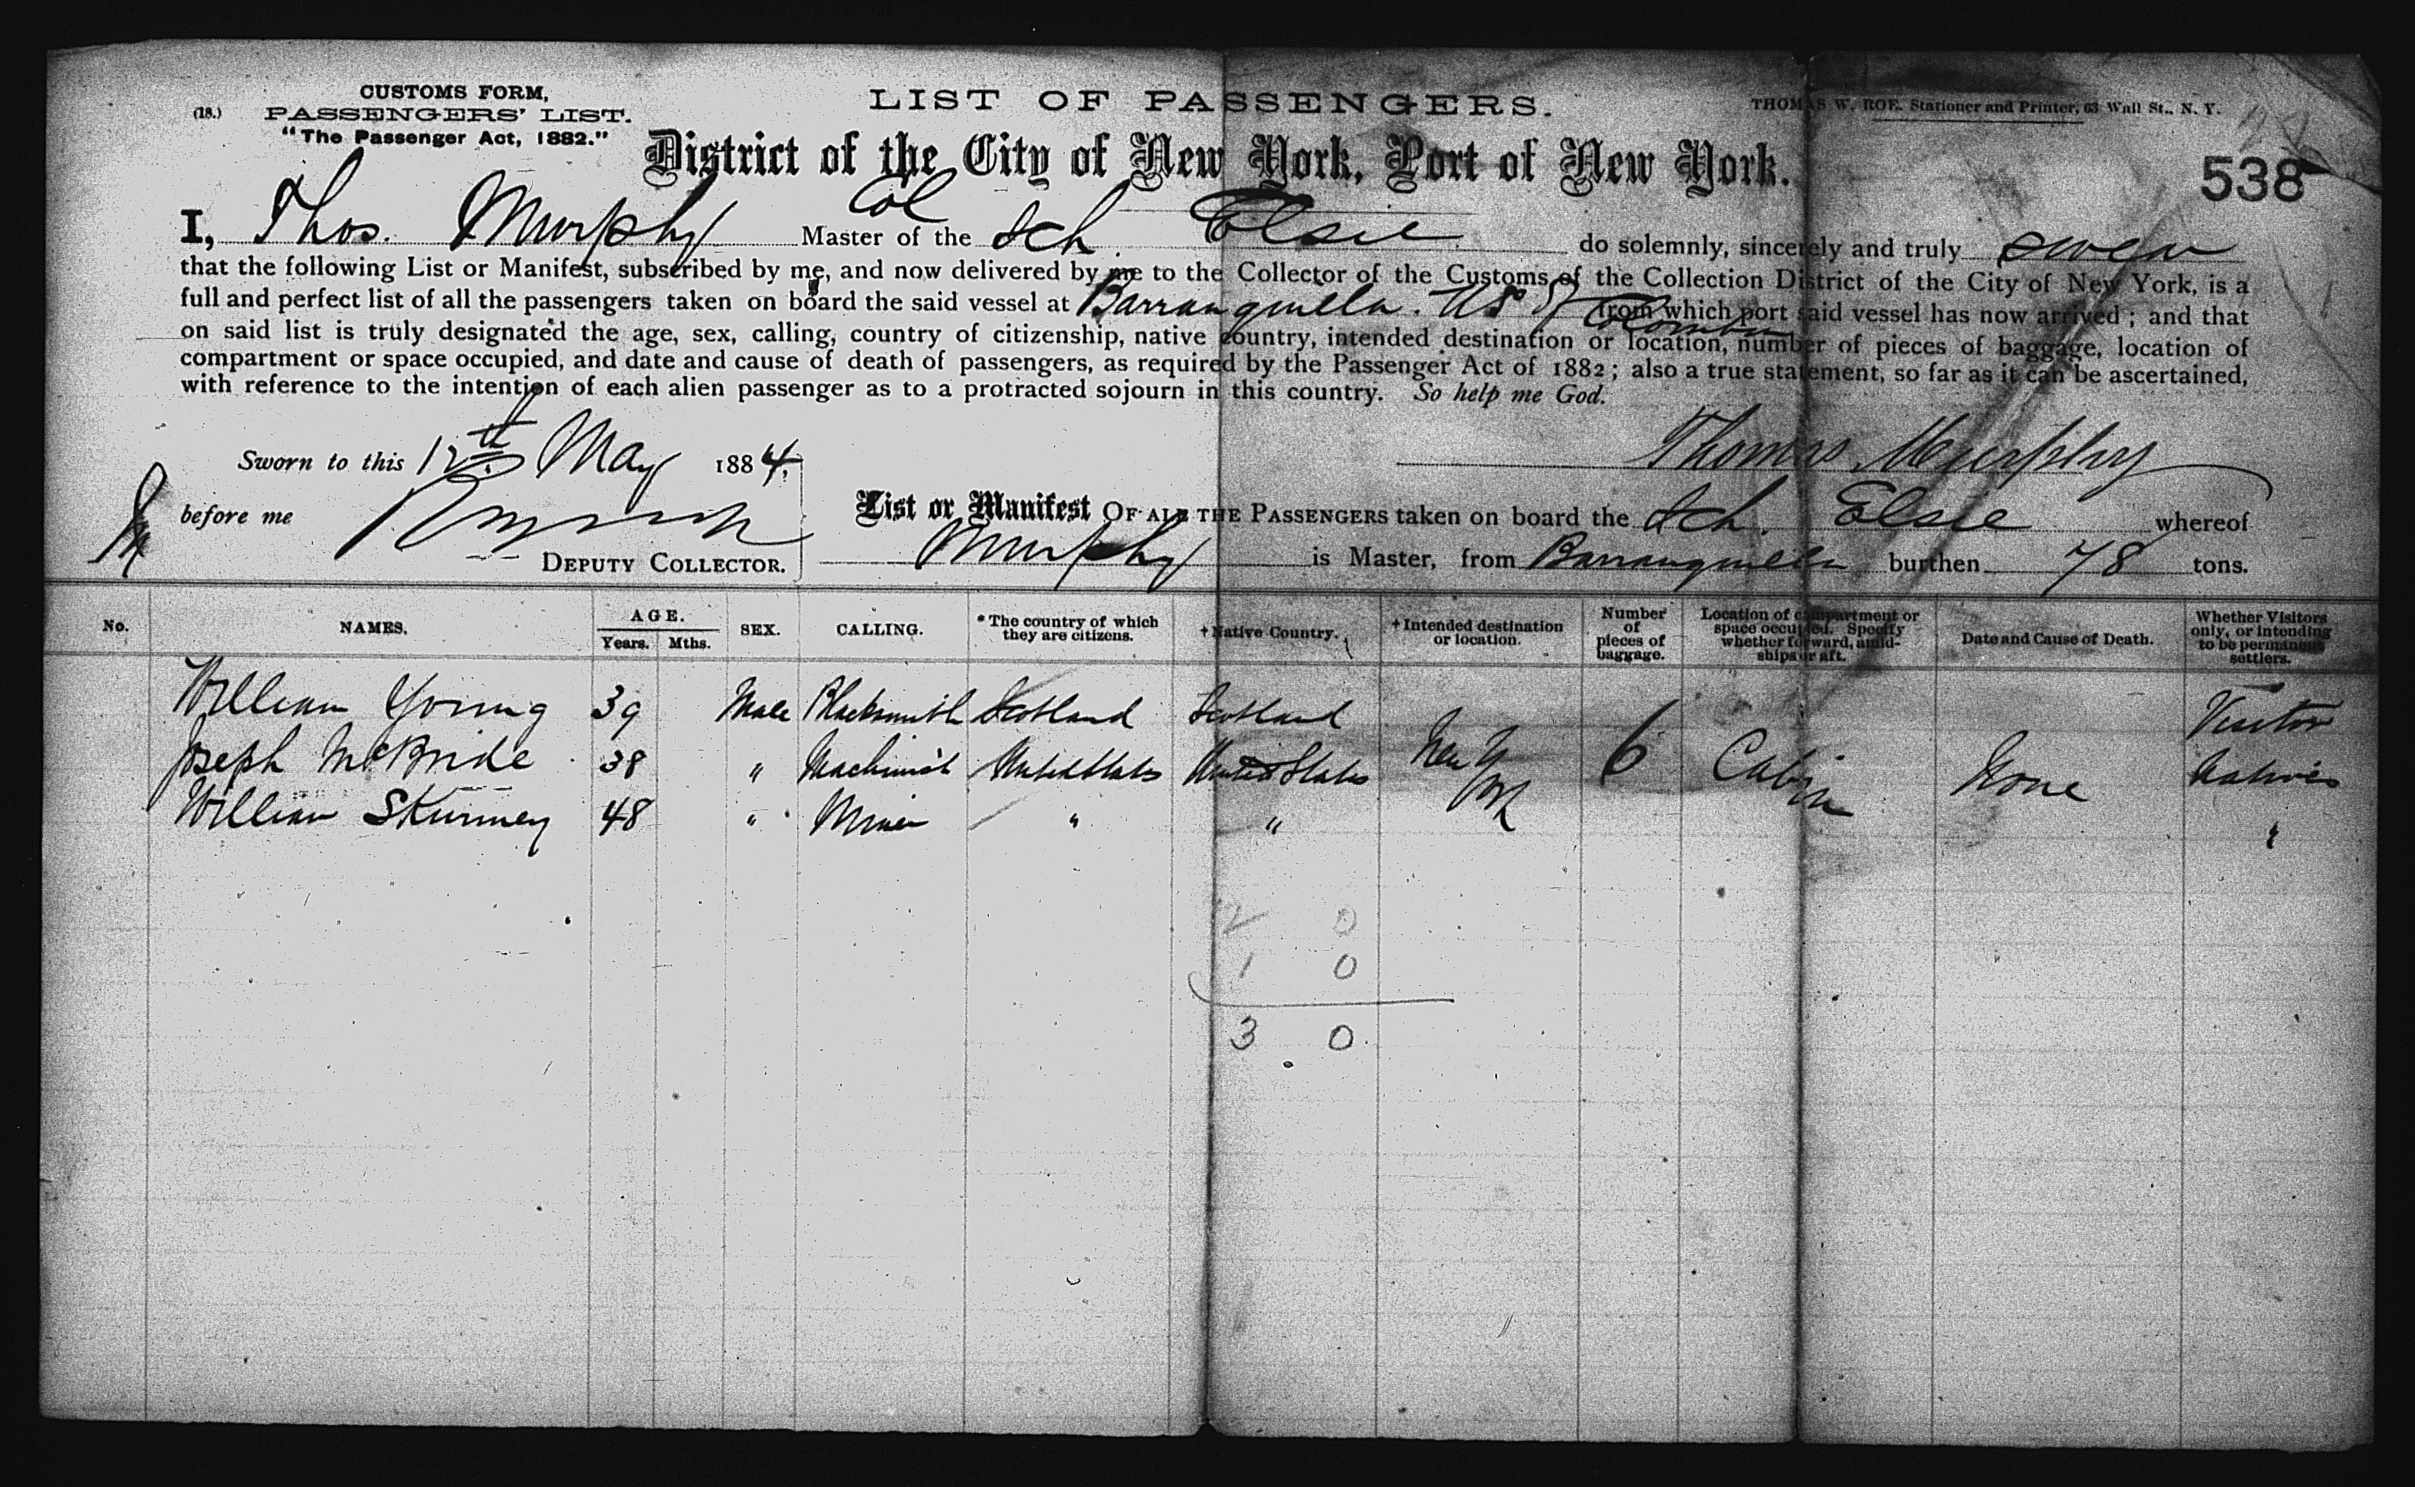 CUSTOMS FORM,
(18.) PASSENGERS' LIST.
"The Passenger Act, 1882."
LIST OF PASSENGERS.
THOMAS W. ROE. Stationer and Printer, 63 Wall St., N. Y.
District of the City of New York, Port of New York.
538
Col
I, Thos. Murphy Master of the Sch. Elsie do solemnly, sincerely and truly swear
that the following List or Manifest, subscribed by me, and now delivered by me to the Collector of the Customs of the Collection District of the City of New York, is a
full and perfect list of all the passengers taken on board the said vessel at Barranquilla. US of Colombia from which port said vessel has now arrived; and that
on said list is truly designated the age, sex, calling, country of citizenship, native country, intended destination or location, number of pieces of baggage, location of
compartment or space occupied, and date and cause of death of passengers, as required by the Passenger Act of 1882; also a true statement, so far as it can be ascertained,
with reference to the intention of each alien passenger as to a protracted sojourn in this country. So help me God.
Sworn to this 12th May 1884. Thomas Murphy
before me
DEPUTY COLLECTOR.
List or Manifest OF ALL THE PASSENGERS taken on board the Sch. Elsie whereof
Murphy is Master, from Barranquilla burthen 78 tons.
No. NAMES. AGE. Years. Mths. SEX. CALLING. *The country of which they are citizens. †Native Country. †Intended destination or location. Number of pieces of baggage. Location of compartment or space occupied. Specify whether forward, amidships or aft. Date and Cause of Death. Whether Visitors only, or intending to be permanent settlers.
William Young 39 Male Blacksmith Scotland Scotland Visitor
Joseph McBride 38 " Machinist United States United States New York 6 Cabin None Natives
William Skinney 48 " Miner " " "
2 0
1 0
3 0